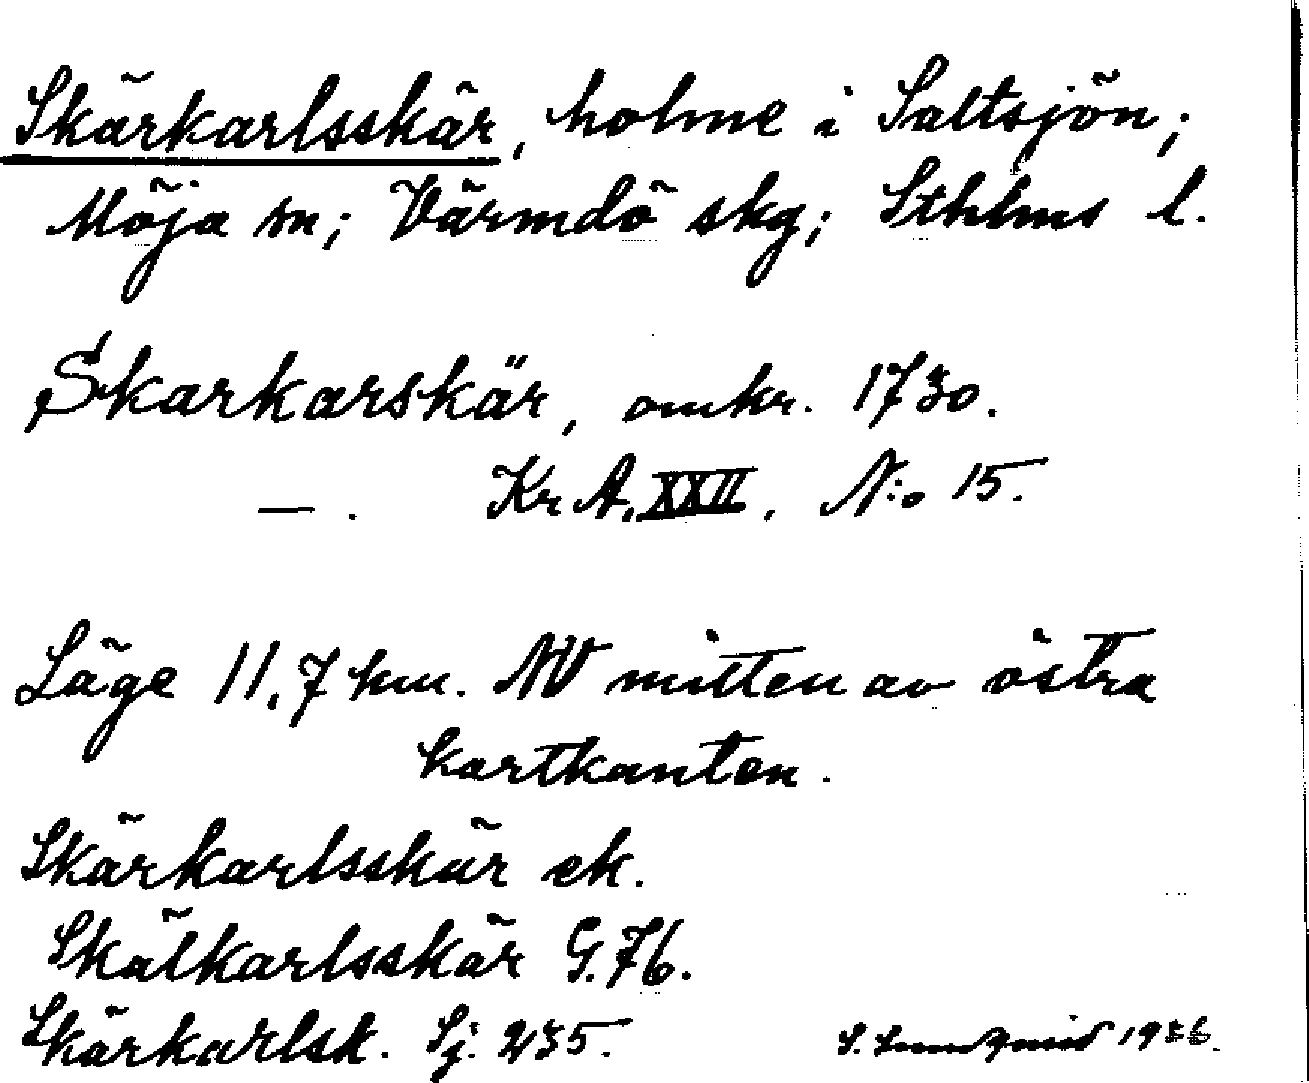 Skärkarlsskär, holme i Saltsjön;
Möja sn; Värmdö skg; Sthlms l.
Skarkarskär, omkr. 1730.
— . Kr A. XXII, N:o 15.
Läge 11,7 km. NV mitten av östra
kartkanten.
Skärkarlsskär ek.
Skälkarlsskär G. 76.
Skärkarlsk. Sj. 235.
S. Lundqvist 1936.